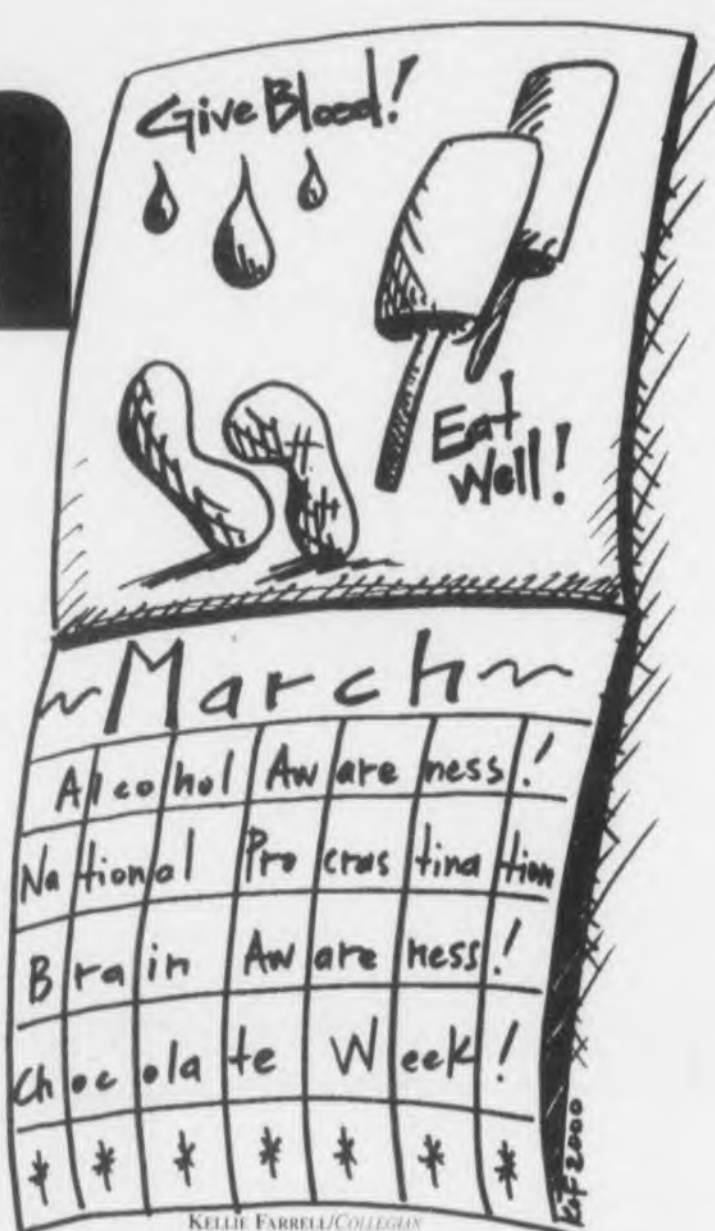 Give Blood!
Eat
Well!
~March~
Alcohol Awareness!
National Procrastination
Brain Awareness!
Chocolate Week!
* * * * * * *
KJF 2000
KELLIE FARRELL/COLLEGIAN